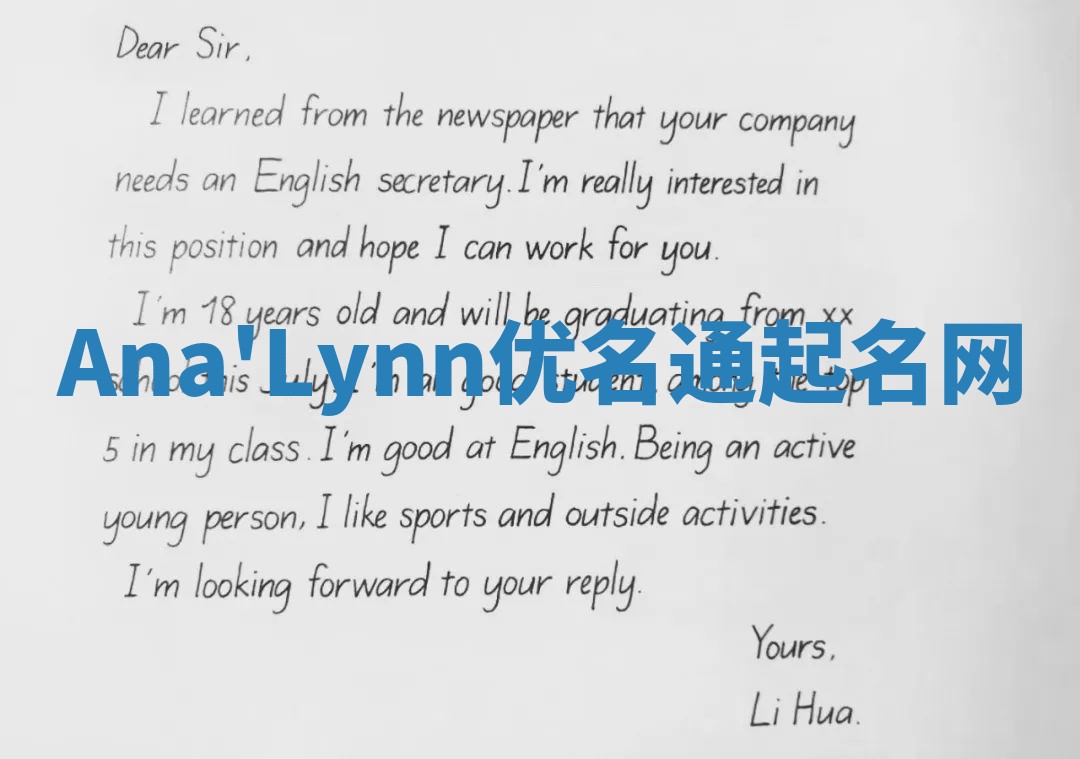 Dear Sir,
I learned from the newspaper that your company
needs an English secretary. I'm really interested in
this position and hope I can work for you.
I'm 18 years old and will be graduating from xx
Ana'Lynn优名通起名网
school this July. I'm good student, among the top
5 in my class. I'm good at English. Being an active
young person, I like sports and outside activities.
I'm looking forward to your reply.
Yours,
Li Hua.